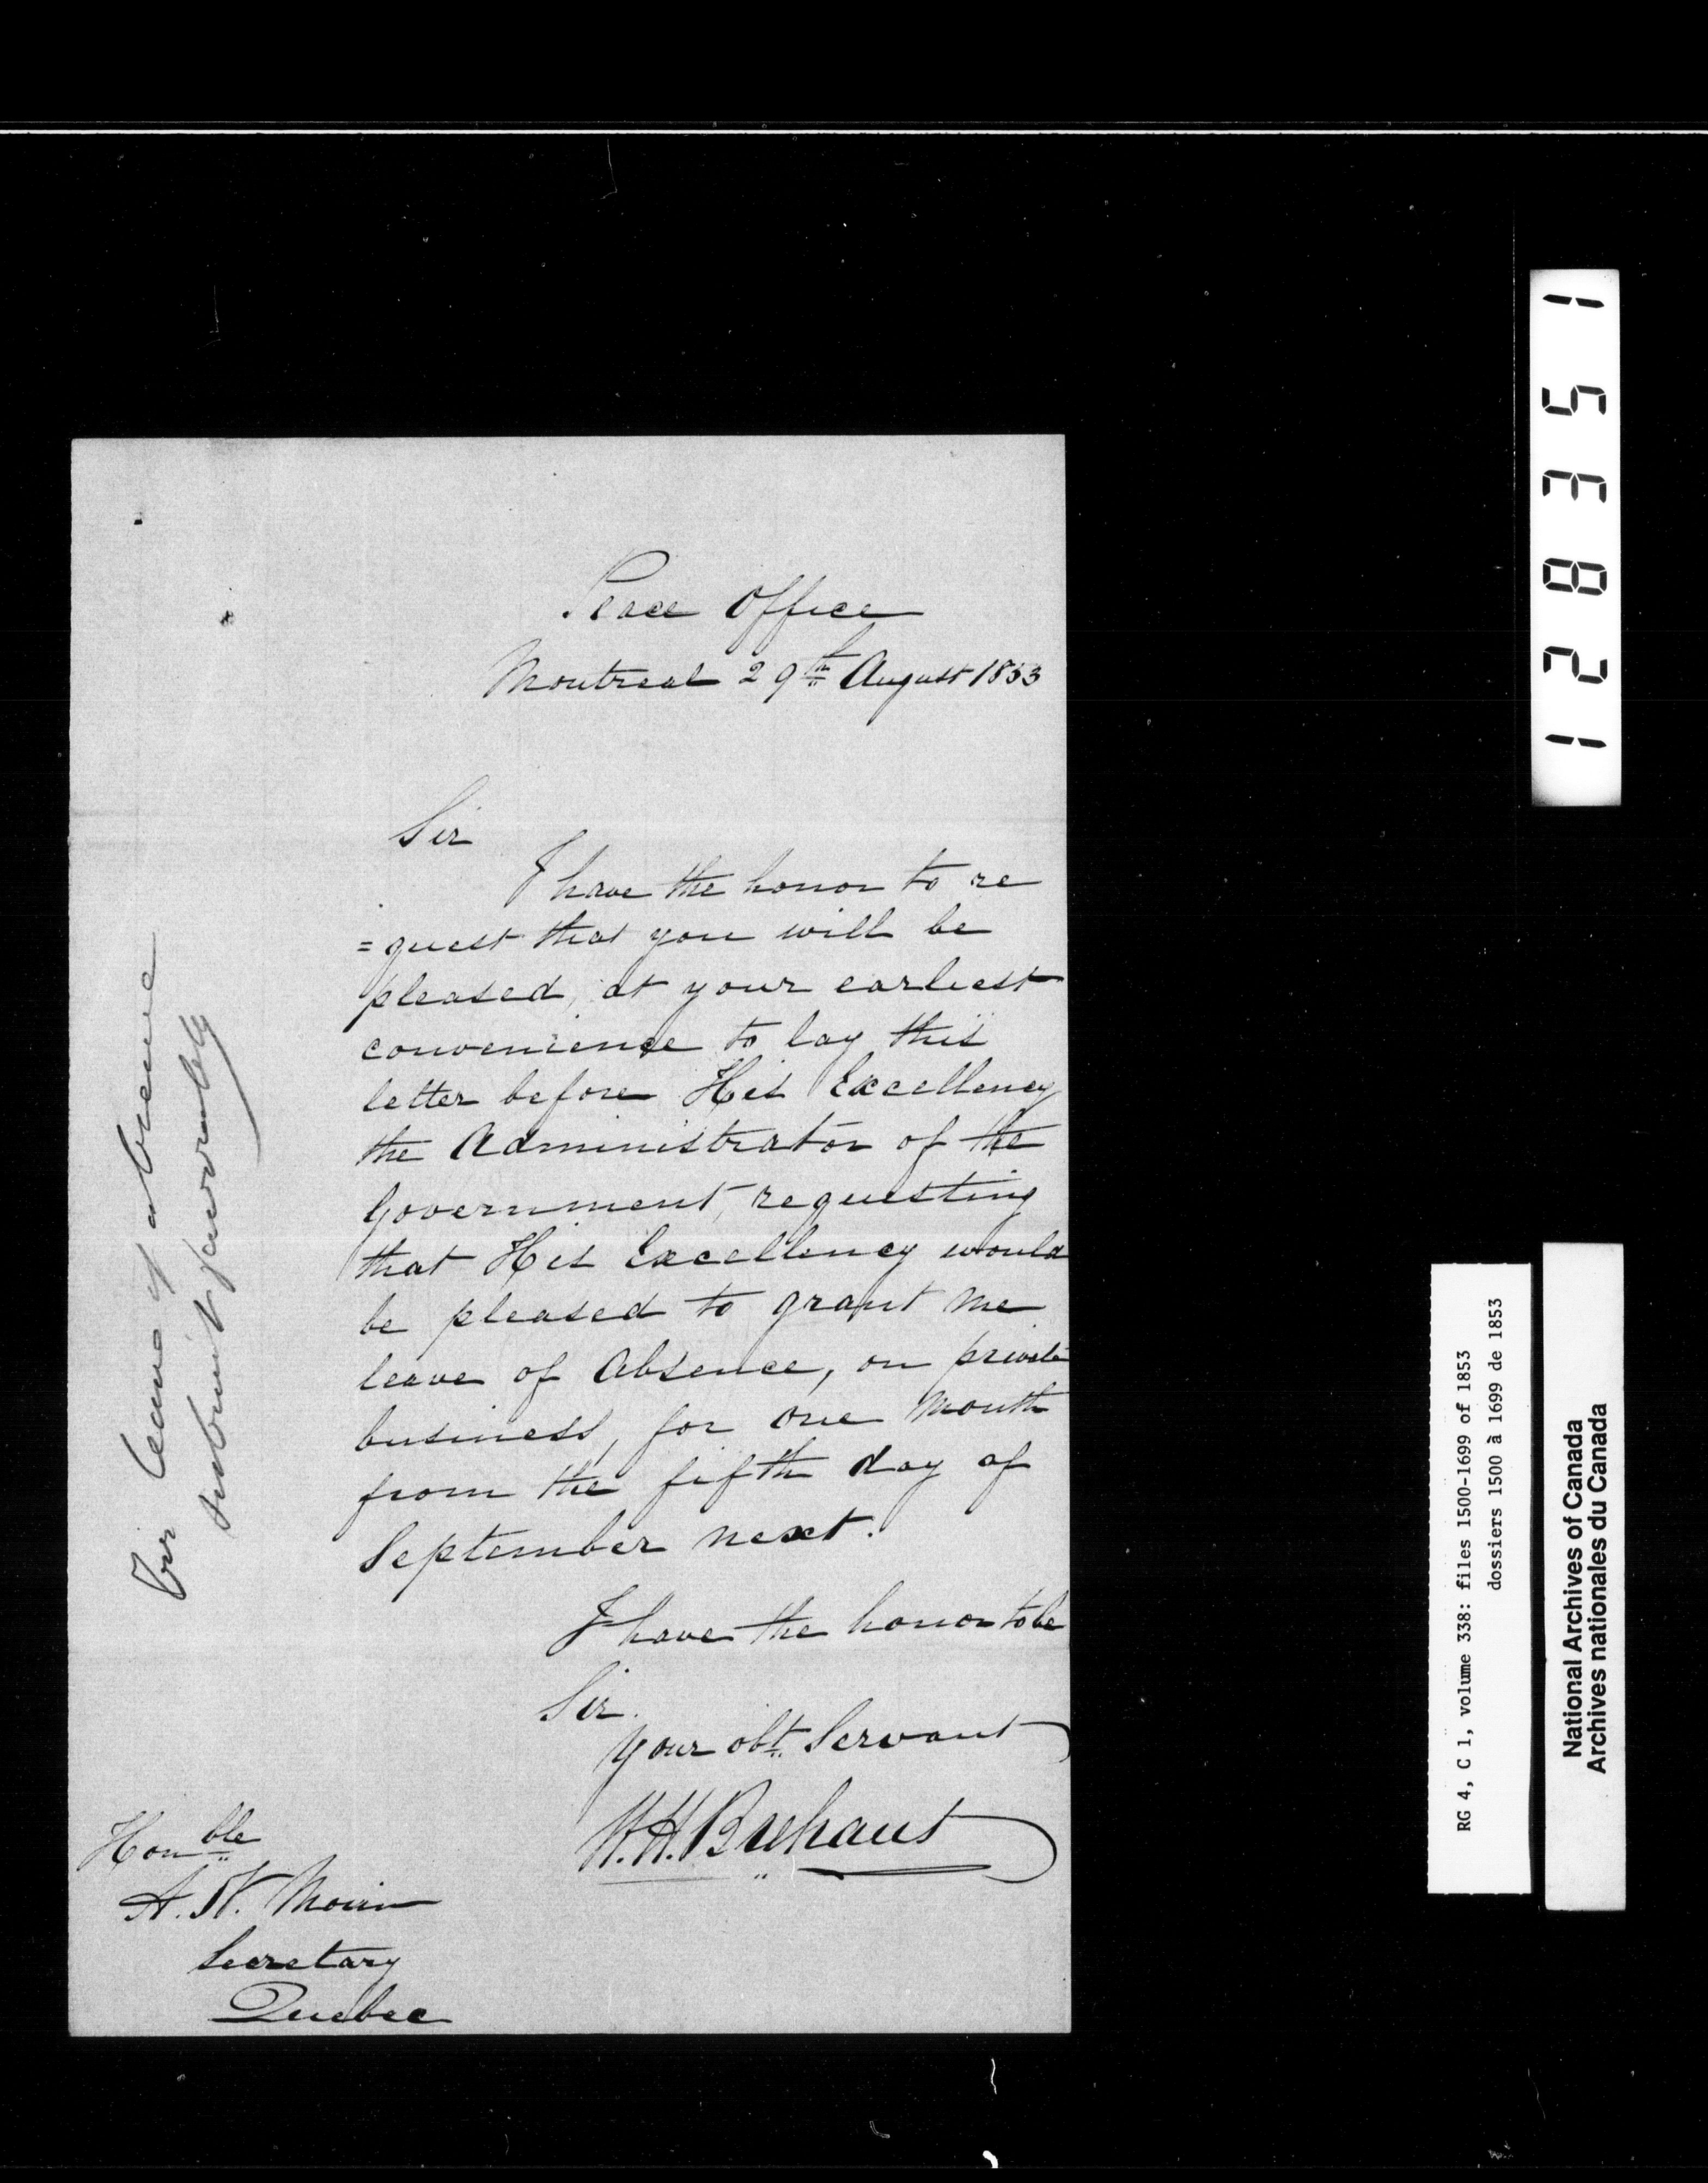 Peace Office
Montreal 29th August 1853
Sir
I have the honor to re
=quest that you will be
pleased, at your earliest
convenience to lay this
letter before His Excellency
the Administrator of the
Government, requesting
that His Excellency would
be pleased to grant me
leave of absence, on private
business, for one month
from the fifth day of
September next.
I have the honor to be
Sir.
Your obt. Servant
W.H. Brehaut
Honble
A. N. Morin
Secretary
Quebec
For leave of absence
submit favorably
128351
RG 4, C 1, volume 338: files 1500-1699 of 1853
dossiers 1500 à 1699 de 1853
National Archives of Canada
Archives nationales du Canada